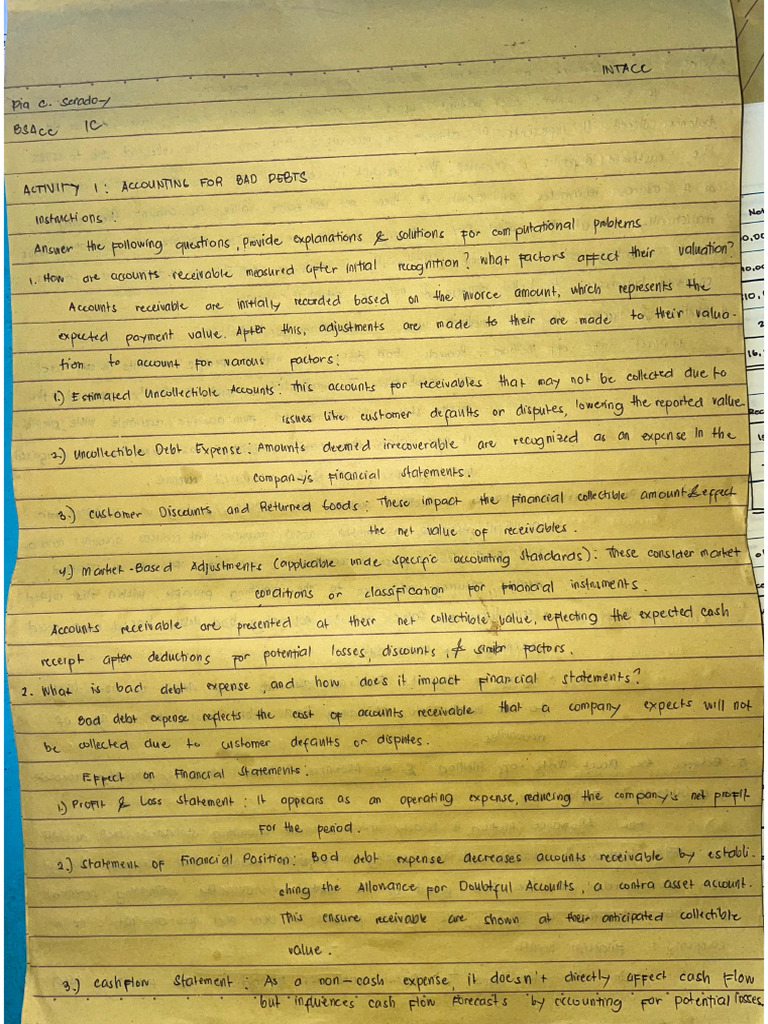 INTACC
Pia C. Serado-y
BSAcc 1C
ACTIVITY 1: ACCOUNTING FOR BAD DEBTS
Instructions:
Answer the following questions, Provide explanations & solutions for computational problems
1. How are accounts receivable measured after initial recognition? What factors affect their valuation?
Accounts receivable are initially recorded based on the invoice amount, which represents the
expected payment value. After this, adjustments are made to their are made to their valua-
tion to account for various factors:
1.) Estimated Uncollectible Accounts: This accounts for receivables that may not be collected due to
issues like customer defaults or disputes, lowering the reported value.
2.) Uncollectible Debt Expense: Amounts deemed irrecoverable are recognized as an expense in the
company's financial statements.
3.) Customer Discounts and Returned Goods: These impact the financial collectible amount & effect
the net value of receivables.
4.) Market-Based Adjustments (applicable unde specific accounting standards): These consider market
conditions or classification for financial instruments.
Accounts receivable are presented at their net collectible value, reflecting the expected cash
receipt after deductions for potential losses, discounts, & similar factors.
2. What is bad debt expense, and how does it impact financial statements?
Bad debt expense reflects the cost of accounts receivable that a company expects will not
be collected due to customer defaults or disputes.
Effect on Financial Statements:
1.) Profit & Loss Statement: It appears as an operating expense, reducing the company's net profit
for the period.
2.) Statement of Financial Position: Bad debt expense decreases accounts receivable by establi-
ching the Allowance for Doubtful Accounts, a contra asset account.
This ensure receivable are shown at their anticipated collectible
value.
3.) Cashflow Statement: As a non-cash expense, it doesn't directly affect cash flow
but influences cash flow forecasts by accounting for potential losses.